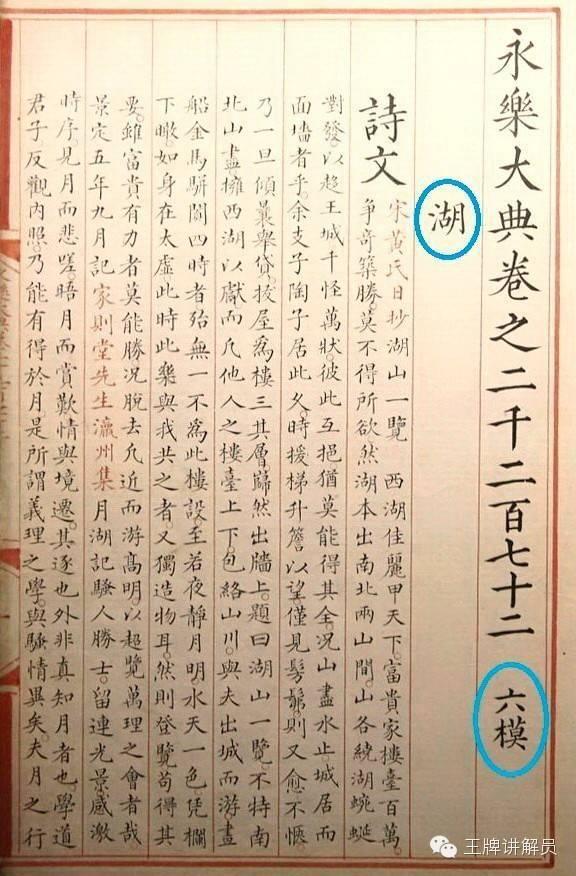 永樂大典卷之二千二百七十二 六模
湖
詩文
宋黃氏日抄湖山一覽 西湖佳麗甲天下。富貴家樓臺百萬。
爭奇築勝。莫不得所欲然湖本出南北兩山間。山各繞湖蜿蜒
對發。以趨王城千怪萬狀。彼此互挹猶莫能得其全。况山盡水止。城居而
面墻者乎。余支子陶子居此久。時援梯升簷以望僅見髣髴。則又愈不愜
乃一旦傾囊舉貸。拔屋爲樓三其層巋然出牆上。題曰湖山一覽。不特南
北山盡擁西湖以獻而凡他人之樓臺上下。包絡山川。與夫出城而游畫
船金馬駢闐四時者殆無一不爲此樓設。至若夜靜月明。水天一色。凭欄
下瞰。如身在太虛此時此樂與我共之者。又獨造物耳。然則登覽苟得其
要。雖富貴有力者莫能勝况脫去凡近而游高明。以超覽萬理之會者哉
景定五年九月記家則堂先生瀛州集月湖記騷人勝士。留連光景。感激
時序。見月而悲嗟。晤月而賞歎情與境遷。其逐也外非真知月者也。學道
君子。反觀內照。乃能有得於月。是所謂義理之學。與騷情異矣。夫月之行
王牌讲解员